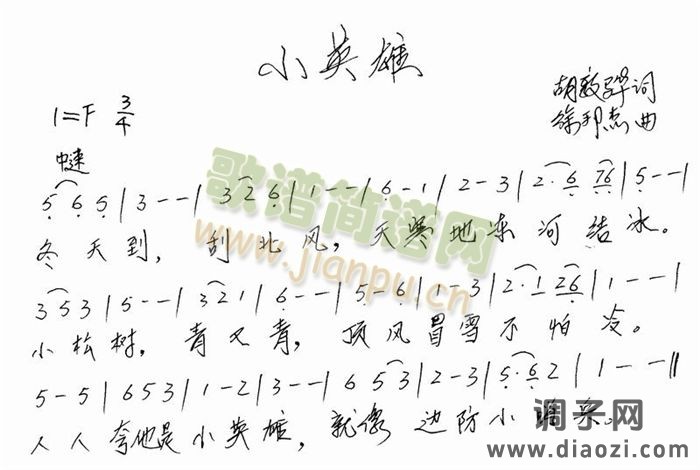 小英雄
胡敦骅词
1=F 3/4
徐邦杰曲
中速
5 6 5 | 3 - - | 3 2 6 | 1 - - | 6 - 1 | 2 - 3 | 2 · 6 76 | 5 - - |
冬天到，刮北风，天寒地冻河结冰。
3 5 3 | 5 - - | 3 2 1 | 6 - - | 5 - 6 | 1 - 3 | 2 · 1 26 | 1 - - |
小松树，青又青，顶风冒雪不怕冷。
5 - 5 | 6 5 3 | 1 - 2 | 3 - - | 6 5 3 | 2 - 3 | 5 · 6 2 | 1 - - ‖
人人夸他是小英雄，就像边防小哨兵。
歌谱简谱网
www.jianpu.cn
调子网
www.diaozi.com